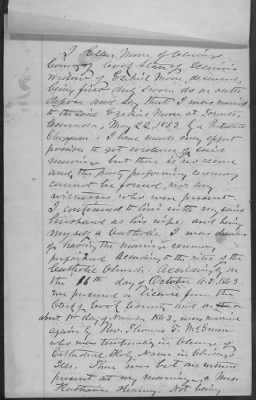 I Ellen Moore of Chicago
County of Cook State of Illinois
widow of Ezekiel Moore, deceased,
being first duly sworn do on oath
depose and say that I was married
to the said Ezekiel Moore at Toronto
Canada, May 22, 1863 by a Protestant
Clergyman: I have made every effort
possible to get evidence of said
marriage but there is no record
and the party performing ceremony
cannot be found, nor any
witnesses who were present
I continued to live with my said
husband as his wife and being
myself a Catholic I was desirous
of having the marriage ceremony
performed according to the rites of the
Catholic Church. Accordingly on
the 16th day of October A.D. 1863
we procured a license from the
Clerk of Cook County and on or
about 1st day of November 1863, were married
again by Rev. Thomas F.
who was temporarily in charge of
Cathedral Holy Name in Chicago
Ills. There was but one witness
present at my marriage, a Mrs.
Katharine Not being